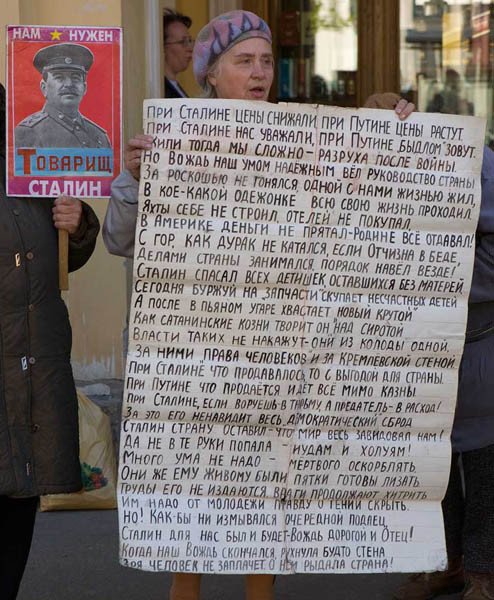 НАМ НУЖЕН
ТОВАРИЩ
СТАЛИН
ПРИ СТАЛИНЕ ЦЕНЫ СНИЖАЛИ, ПРИ ПУТИНЕ ЦЕНЫ РАСТУТ
ПРИ СТАЛИНЕ НАС УВАЖАЛИ, ПРИ ПУТИНЕ „БЫДЛОМ" ЗОВУТ.
ЖИЛИ ТОГДА МЫ СЛОЖНО - РАЗРУХА ПОСЛЕ ВОЙНЫ.
НО ВОЖДЬ НАШ УМОМ НАДЁЖНЫМ ВЁЛ РУКОВОДСТВО СТРАНЫ
ЗА РОСКОШЬЮ НЕ ГОНЯЛСЯ, ОДНОЙ С НАМИ ЖИЗНЬЮ ЖИЛ,
В КОЕ-КАКОЙ ОДЕЖОНКЕ ВСЮ СВОЮ ЖИЗНЬ ПРОХОДИЛ.
ЯХТЫ СЕБЕ НЕ СТРОИЛ, ОТЕЛЕЙ НЕ ПОКУПАЛ
В АМЕРИКЕ ДЕНЬГИ НЕ ПРЯТАЛ - РОДИНЕ ВСЁ ОТДАВАЛ!
С ГОР, КАК ДУРАК НЕ КАТАЛСЯ, ЕСЛИ ОТЧИЗНА В БЕДЕ,
ДЕЛАМИ СТРАНЫ ЗАНИМАЛСЯ, ПОРЯДОК НАВЁЛ ВЕЗДЕ!
СТАЛИН СПАСАЛ ВСЕХ ДЕТИШЕК, ОСТАВШИХСЯ БЕЗ МАТЕРЕЙ.
СЕГОДНЯ БУРЖУЙ НА „ЗАПЧАСТИ" СКУПАЕТ НЕСЧАСТНЫХ ДЕТЕЙ
А ПОСЛЕ В ПЬЯНОМ УГАРЕ ХВАСТАЕТ „НОВЫЙ КРУТОЙ"
КАК САТАНИНСКИЕ КОЗНИ ТВОРИТ ОН НАД СИРОТОЙ
ВЛАСТИ ТАКИХ НЕ НАКАЖУТ - ОНИ ИЗ КОЛОДЫ ОДНОЙ,
ЗА НИМИ „ПРАВА ЧЕЛОВЕКОВ" И ЗА КРЕМЛЕВСКОЙ СТЕНОЙ.
ПРИ СТАЛИНЕ ЧТО ПРОДАВАЛОСЬ, ТО С ВЫГОДОЙ ДЛЯ СТРАНЫ.
ПРИ ПУТИНЕ ЧТО ПРОДАЁТСЯ ИДЁТ ВСЁ МИМО КАЗНЫ.
ПРИ СТАЛИНЕ, ЕСЛИ ВОРУЕШЬ В ТЮРЬМУ, А ПРЕДАТЕЛЬ - В РАСХОД!
ЗА ЭТО ЕГО НЕНАВИДИТ ВЕСЬ „ДЕМОКРАТИЧЕСКИЙ" СБРОД
СТАЛИН СТРАНУ ОСТАВИЛ - ЧТО МИР ВЕСЬ ЗАВИДОВАЛ НАМ!
ДА НЕ В ТЕ РУКИ ПОПАЛА - ИУДАМ И ХОЛУЯМ!
МНОГО УМА НЕ НАДО - МЕРТВОГО ОСКОРБЛЯТЬ.
ОНИ ЖЕ ЕМУ ЖИВОМУ БЫЛИ ПЯТКИ ГОТОВЫ ЛИЗАТЬ
ТРУДЫ ЕГО НЕ ИЗДАЮТСЯ, ВРАГИ ПРОДОЛЖАЮТ ХИТРИТЬ
ИМ НАДО ОТ МОЛОДЁЖИ ПРАВДУ О ГЕНИИ СКРЫТЬ.
НО! КАК-БЫ НИ ИЗМЫВАЛСЯ ОЧЕРЕДНОЙ ПОДЛЕЦ
СТАЛИН ДЛЯ НАС БЫЛ И БУДЕТ - ВОЖДЬ ДОРОГОЙ И ОТЕЦ!
КОГДА НАШ ВОЖДЬ СКОНЧАЛСЯ, РУХНУЛА БУДТО СТЕНА
ЗРЯ ЧЕЛОВЕК НЕ ЗАПЛАЧЕТ О НЁМ РЫДАЛА СТРАНА!